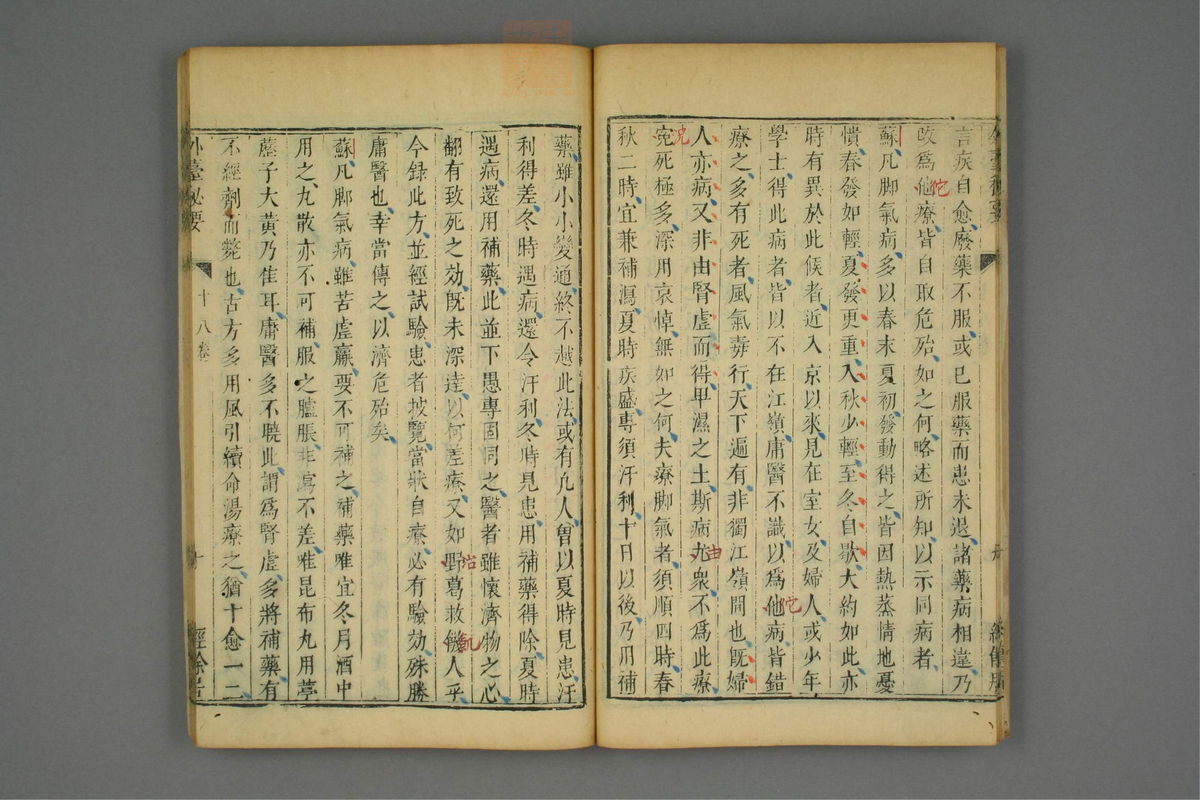 言疾自愈廢藥不服或已服藥而患未退諸藥病相違乃
改爲他療皆自取危殆如之何略述所知以示同病者
蘇凡脚氣病多以春末夏初發動得之皆因熱蒸情地憂
憤春發如輕夏發更重入秋少輕至冬自歇大約如此亦
時有異於此候者近入京以來見在室女及婦人或少年
學士得此病者皆以不在江嶺庸醫不識以爲他病皆錯
療之多有死者風氣毒行天下遍有非獨江嶺間也旣婦
人亦病又非由腎虛而得卑濕之土斯病尤衆不爲此療
寃死極多深用哀悼無如之何夫療脚氣者須順四時春
秋二時宜兼補瀉夏時疾盛專須汗利十日以後乃用補
藥雖小小變通終不越此法或有凡人曽以夏時見患汗
利得差冬時遇病還令汗利冬時見患用補藥得除夏時
遇病還用補藥此並下愚專固同之醫者雖懷濟物之心
翻有致死之効旣未深達以何差療又如野葛救饑人乎
今録此方並經試驗患者披覽當狀自療必有驗効殊勝
庸醫也幸當傳之以濟危殆矣
蘇凡脚氣病雖苦虛羸要不可補之補藥唯宜冬月酒中
用之丸散亦不可補服之臚脹非瀉不差唯昆布丸用葶
藶子大黃乃佳耳庸醫多不曉此謂爲腎虛多將補藥有
不經劑而斃也古方多用風引續命湯療之猶十愈一二
外臺秘要
十八卷
十
經餘居
陀
陀
由
兄
冶